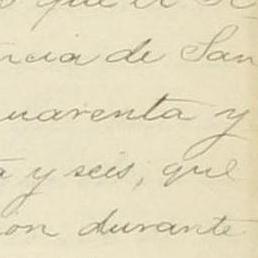 que el
ncia de San
uarenta y
a y seis, que
ion durante